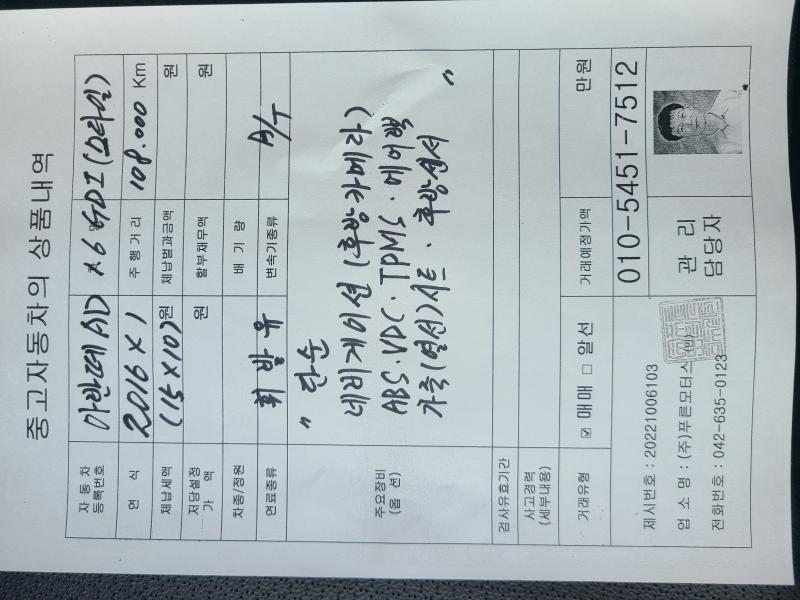 중고자동차의 상품내역
자 동 차
등록번호
아반떼AD 1.6 GDI (스타일)
연 식
2016 X 1
주 행 거 리
108.000 Km
체납세액
(15X10)원
체납벌과금액
원
저당설정
가 액
원
할부채무액
원
차종/정원
배 기 량
연료종류
휘 발 유
변속기종류
A/T
주요장비
(옵 션)
" 단순
네비게이션 (후방카메라)
ABS · VDC · TPMS · 에어백
가죽(열선)시트 · 후방센서 "
검사유효기간
사고경력
(세부내용)
거래유형
☑ 매매 □ 알선
거래예정가액
만원
제시번호 : 20221006103
업 소 명 : (주)푸른모터스 (인)
전화번호 : 042-635-0123
관 리
담당자
010-5451-7512